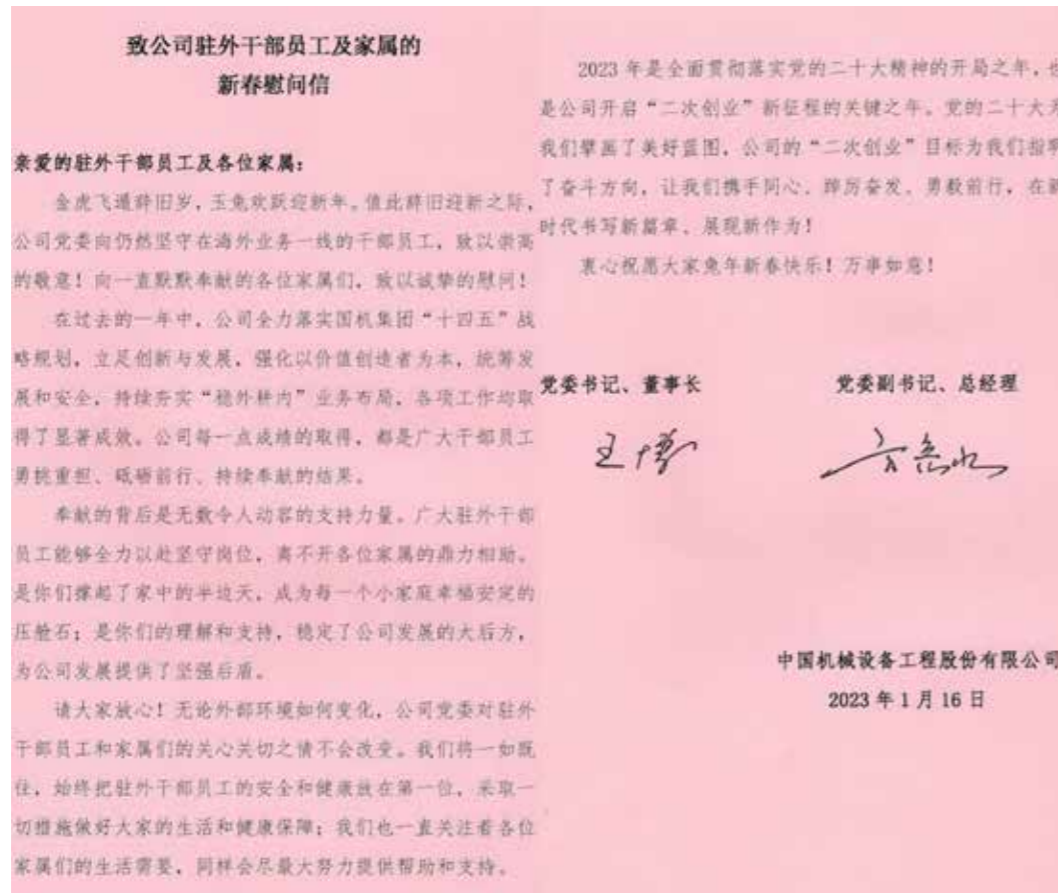 致公司驻外干部员工及家属的
新春慰问信
亲爱的驻外干部员工及各位家属：
金虎飞遁辞旧岁，玉兔欢跃迎新年。值此辞旧迎新之际，
公司党委向仍然坚守在海外业务一线的干部员工，致以崇高
的敬意！向一直默默奉献的各位家属们，致以诚挚的慰问！
在过去的一年中，公司全力落实国机集团“十四五”战
略规划，立足创新与发展，强化以价值创造者为本，统筹发
展和安全，持续夯实“稳外耕内”业务布局，各项工作均取
得了显著成效。公司每一点成绩的取得，都是广大干部员工
勇挑重担、砥砺前行、持续奉献的结果。
奉献的背后是无数令人动容的支持力量。广大驻外干部
员工能够全力以赴坚守岗位，离不开各位家属的鼎力相助。
是你们撑起了家中的半边天，成为每一个小家庭幸福安定的
压舱石；是你们的理解和支持，稳定了公司发展的大后方，
为公司发展提供了坚强后盾。
请大家放心！无论外部环境如何变化，公司党委对驻外
干部员工和家属们的关心关切之情不会改变。我们将一如既
往，始终把驻外干部员工的安全和健康放在第一位，采取一
切措施做好大家的生活和健康保障；我们也一直关注着各位
家属们的生活需要，同样会尽最大努力提供帮助和支持。
2023 年是全面贯彻落实党的二十大精神的开局之年，也
是公司开启“二次创业”新征程的关键之年。党的二十大为
我们擘画了美好蓝图，公司的“二次创业”目标为我们指明
了奋斗方向，让我们携手同心、踔厉奋发、勇毅前行，在新
时代书写新篇章、展现新作为！
衷心祝愿大家兔年新春快乐！万事如意！
党委书记、董事长
党委副书记、总经理
王博
中国机械设备工程股份有限公司
2023 年 1 月 16 日